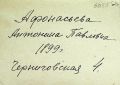 Афонасьева
Антонина Павловна
1899 г.
Черниговская 4.